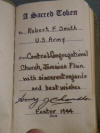 A Sacred Token
to Robert F. Smith
U.S. Army
from Central Congregational
Church, Jamaica Plain
with sincerest regards
and best wishes.
Easter 1944